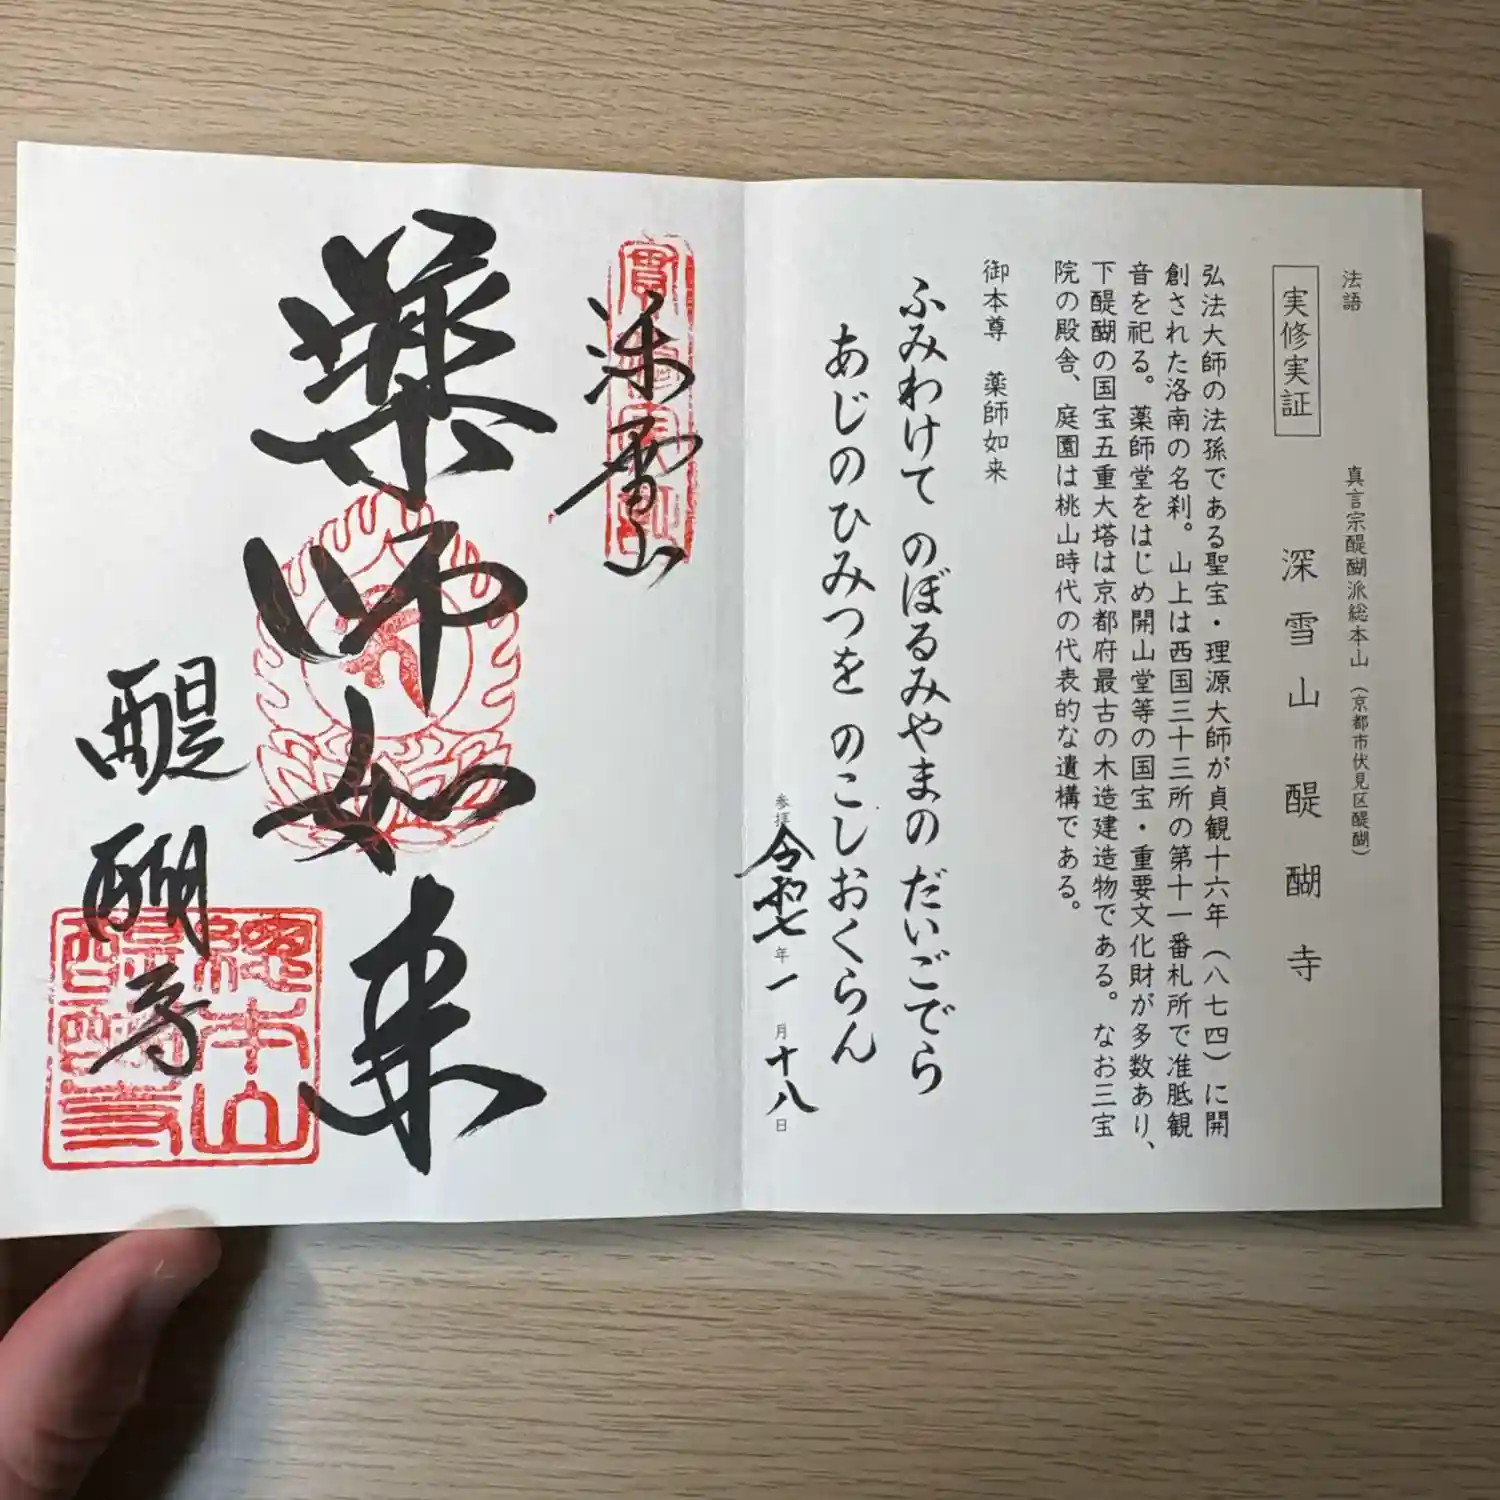 法語
実修実証
真言宗醍醐派総本山（京都市伏見区醍醐）
深雪山醍醐寺
弘法大師の法孫である聖宝・理源大師が貞観十六年（八七四）に開
創された洛南の名刹。山上は西国三十三所の第十一番札所で准胝観
音を祀る。薬師堂をはじめ開山堂等の国宝・重要文化財が多数あり、
下醍醐の国宝五重大塔は京都府最古の木造建造物である。なお三宝
院の殿舎、庭園は桃山時代の代表的な遺構である。
御本尊　薬師如来
ふみわけて のぼるみやまの だいごでら
あじのひみつを のこしおくらん
参拝 令和七年一月十八日
深雪山
實修實証
薬師如来
醍醐寺
総本山
醍醐寺